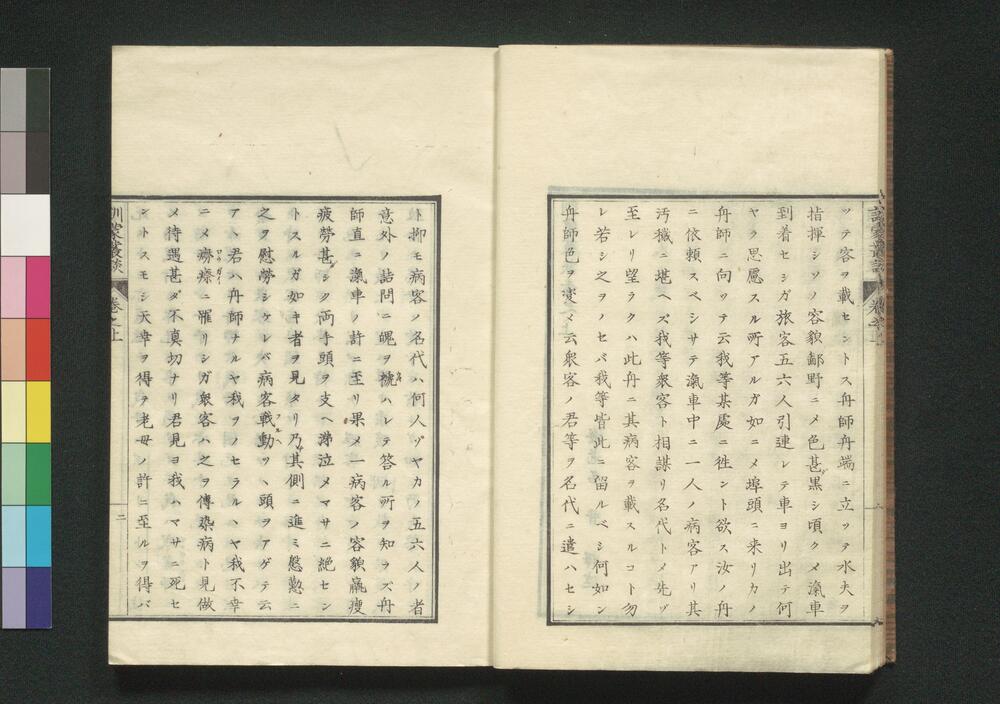 ツテ容ヲ載セントス舟師舟端ニ立ッテ水夫ヲ
指揮シソノ容貌鄙野ニメ色甚ダ黒シ頃クメ滊車
到着セシガ旅客五六人引連レテ車ヨリ出テ何
ヤラ思慮スル所アルガ如ニメ埠頭ニ来リカノ
舟師ニ向ッテ云我等某處ニ徃ント欲ス汝ノ舟
ニ依頼スベシサテ滊車中ニ一人ノ病客アリ其
汚穢ニ堪ヘズ我等衆客ト相謀リ名代トメ先ヅ
至レリ望ラクハ此舟ニ其病客ヲ載スルコト勿
レ若シ之ヲノセバ我等皆此ニ留ルベシ何如ン
舟師色ヲ変メ云衆客ノ君等ヲ名代ニ遣ハセシ
ト抑モ病客ノ名代ハ何人ゾヤカノ五六人ノ者
意外ノ詰問ニ魄ヲ褫ハレテ答ル所ヲ知ラズ舟
師直ニ滊車ノ許ニ至リ果メ一病客ノ容貌羸痩
疲勞甚シク両手頭ヲ支ヘ涕泣メマサニ絶セン
トスルガ如キ者ヲ見タリ乃其側ニ進ミ慇懃ニ
之ヲ慰勞シケレバ病客戰動ツヽ頭ヲアゲテ云
アヽ君ハ舟師ナルヤ我ヲノセラルヽヤ我不幸
ニメ癆瘵ニ罹リシガ衆客ハ之ヲ傳染病ト見做
メ待遇甚ダ不真切ナリ君見ヨ我ハマサニ死セ
ントスモシ天幸ヲ得テ老母ノ許ニ至ルヲ得バ
訓蒙叢談
卷之上
二